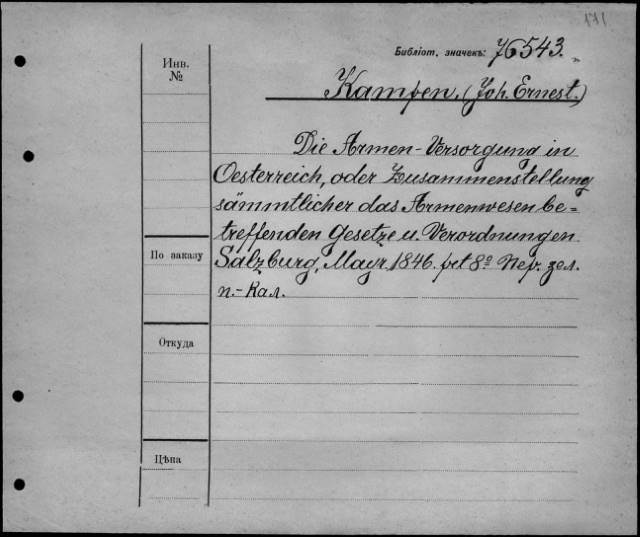 171
Библіот. значекъ: 76543.
Инв.
№
Kampfen, (Joh. Ernest.)
Die Armen-Versorgung in
Oesterreich, oder Zusammenstellung
sämmtlicher das Armenwesen be=
treffenden Gesetze u. Verordnungen.
По заказу
Salzburg, Mayr. 1846. prt 8º Пер. зел.
п.- Кал.
Откуда
Цѣна